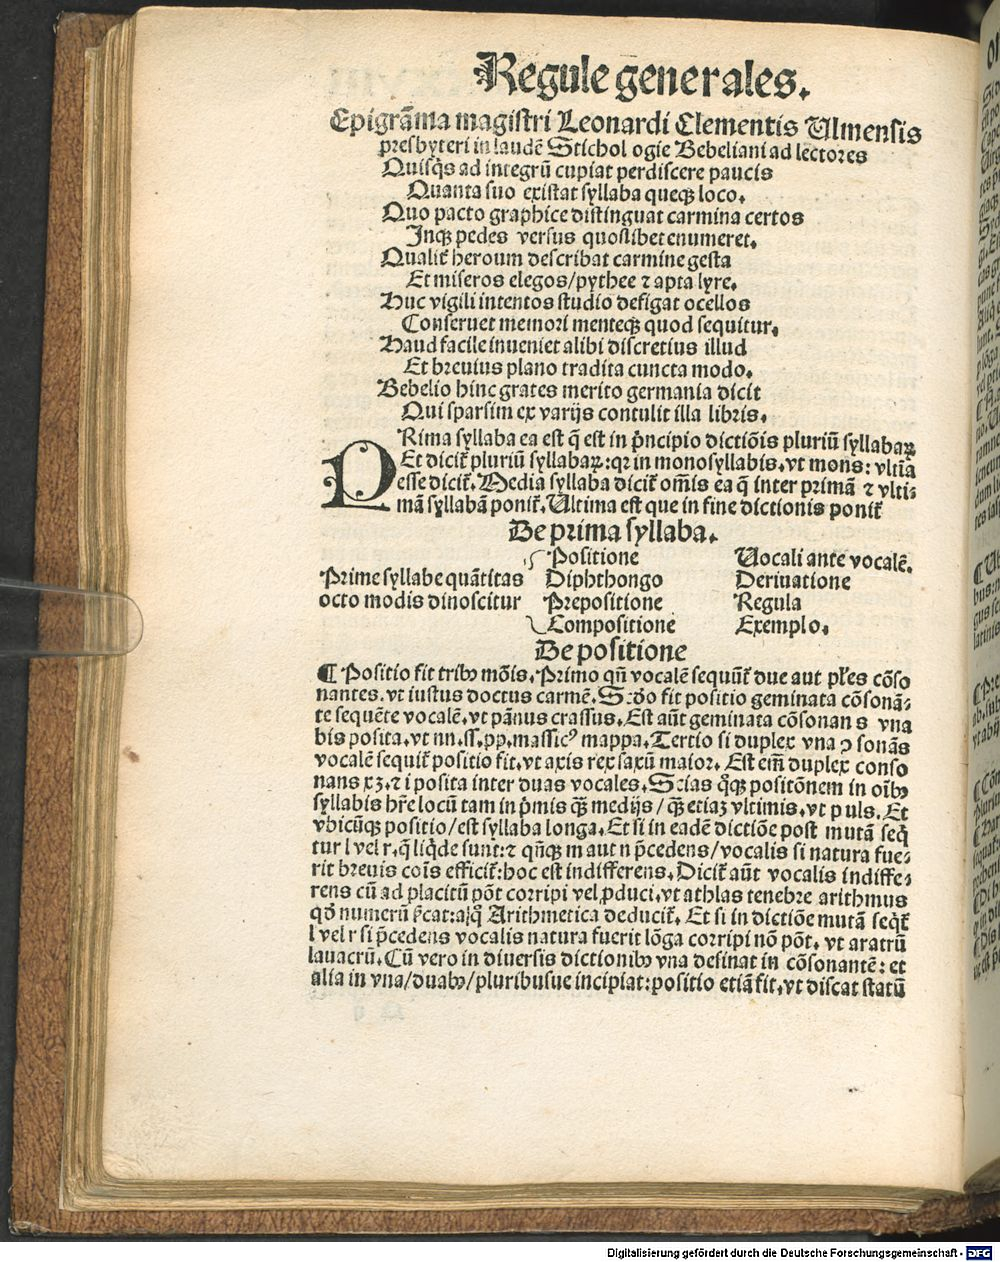 Regule generales.
Epigrãma magistri Leonardi Clementis Ulmensis
presbyteri in laudẽ Stichol ogie Bebeliani ad lectores
Quisq̃s ad integrũ cupiat perdiscere paucis
Quanta suo existat syllaba queqꝫ loco.
Quo pacto graphice distinguat carmina certos
Inqꝫ pedes versus quoslibet enumeret.
Qualit̃ heroum describat carmine gesta
Et miseros elegos/pythee ⁊ apta lyre.
Huc vigili intentos studio defigat ocellos
Conseruet memori menteqꝫ quod sequitur.
Haud facile inueniet alibi discretius illud
Et breuius plano tradita cuncta modo.
Bebelio hinc grates merito germania dicit
Qui sparsim ex varijs contulit illa libris.
PRima syllaba ea est q̃ est in p̃ncipio dictiõis pluriũ syllabaꝝ
Et dicit̃ pluriũ syllabaꝝ: qꝛ in monosyllabis. vt mons: vltĩa
esse dicit̃. Media syllaba dicit̃ om̃is ea q̃ inter primã ⁊ vlti⸗
mã syllabã ponit̃. Ultima est que in fine dictionis ponit̃
De prima syllaba.
Positione Uocali ante vocalẽ.
Prime syllabe quãtitas Diphthongo Deriuatione
octo modis dinoscitur Prepositione Regula
Compositione Exemplo.
De positione
¶ Positio fit tribꝫ mõis. Primo qñ vocalẽ sequũt̃ due aut pl̃es cõso
nantes. vt iustus doctus carmẽ. Scdo fit positio geminata cõsonã⸗
te sequẽte vocalẽ. vt pãnus crassus. Est aũt geminata cõsonan s vna
bis posita. vt nn. ss. pp. massicꝰ mappa. Tertio si duplex vna ↄ sonãs
vocalẽ sequit̃ positio fit. vt axis rex saxũ maior. Est em̃ duplex conso
nans x ʒ. ⁊ i posita inter duas vocales. Scias q̊qꝫ positõnem in oĩbꝫ
syllabis hr̃e locũ tam in p̃mis qꝫ̃ medijs/ qꝫ̃ etiaꝫ vltimis. vt p uls. Et
vbicũqꝫ positio/est syllaba longa. Et si in eadẽ dictiõe post mutã seq̃
tur l vel r. q̃ liq̃de sunt: ⁊ qñqꝫ m aut n p̃cedens/vocalis si natura fue⸗
rit breuis cõis efficit̃: hoc est indifferens. Dicit̃ aũt vocalis indiffe⸗
rens cũ ad placitũ põt corripi vel ꝓduci. vt athlas tenebre arithmus
qd̃ numerũ p̃cat: a quo Arithmetica deducit̃. Et si in dictiõe mutã seqt̃
l vel r si p̃cedens vocalis natura fuerit lõga corripi nõ põt. vt aratrũ
lauacrũ. Cũ vero in diuersis dictionibꝫ vna desinat in cõsonantẽ: et
alia in vna/duabꝫ/pluribusue incipiat: positio etiã fit. vt discat statũ
Digitalisierung gefördert durch die Deutsche Forschungsgemeinschaft - DFG